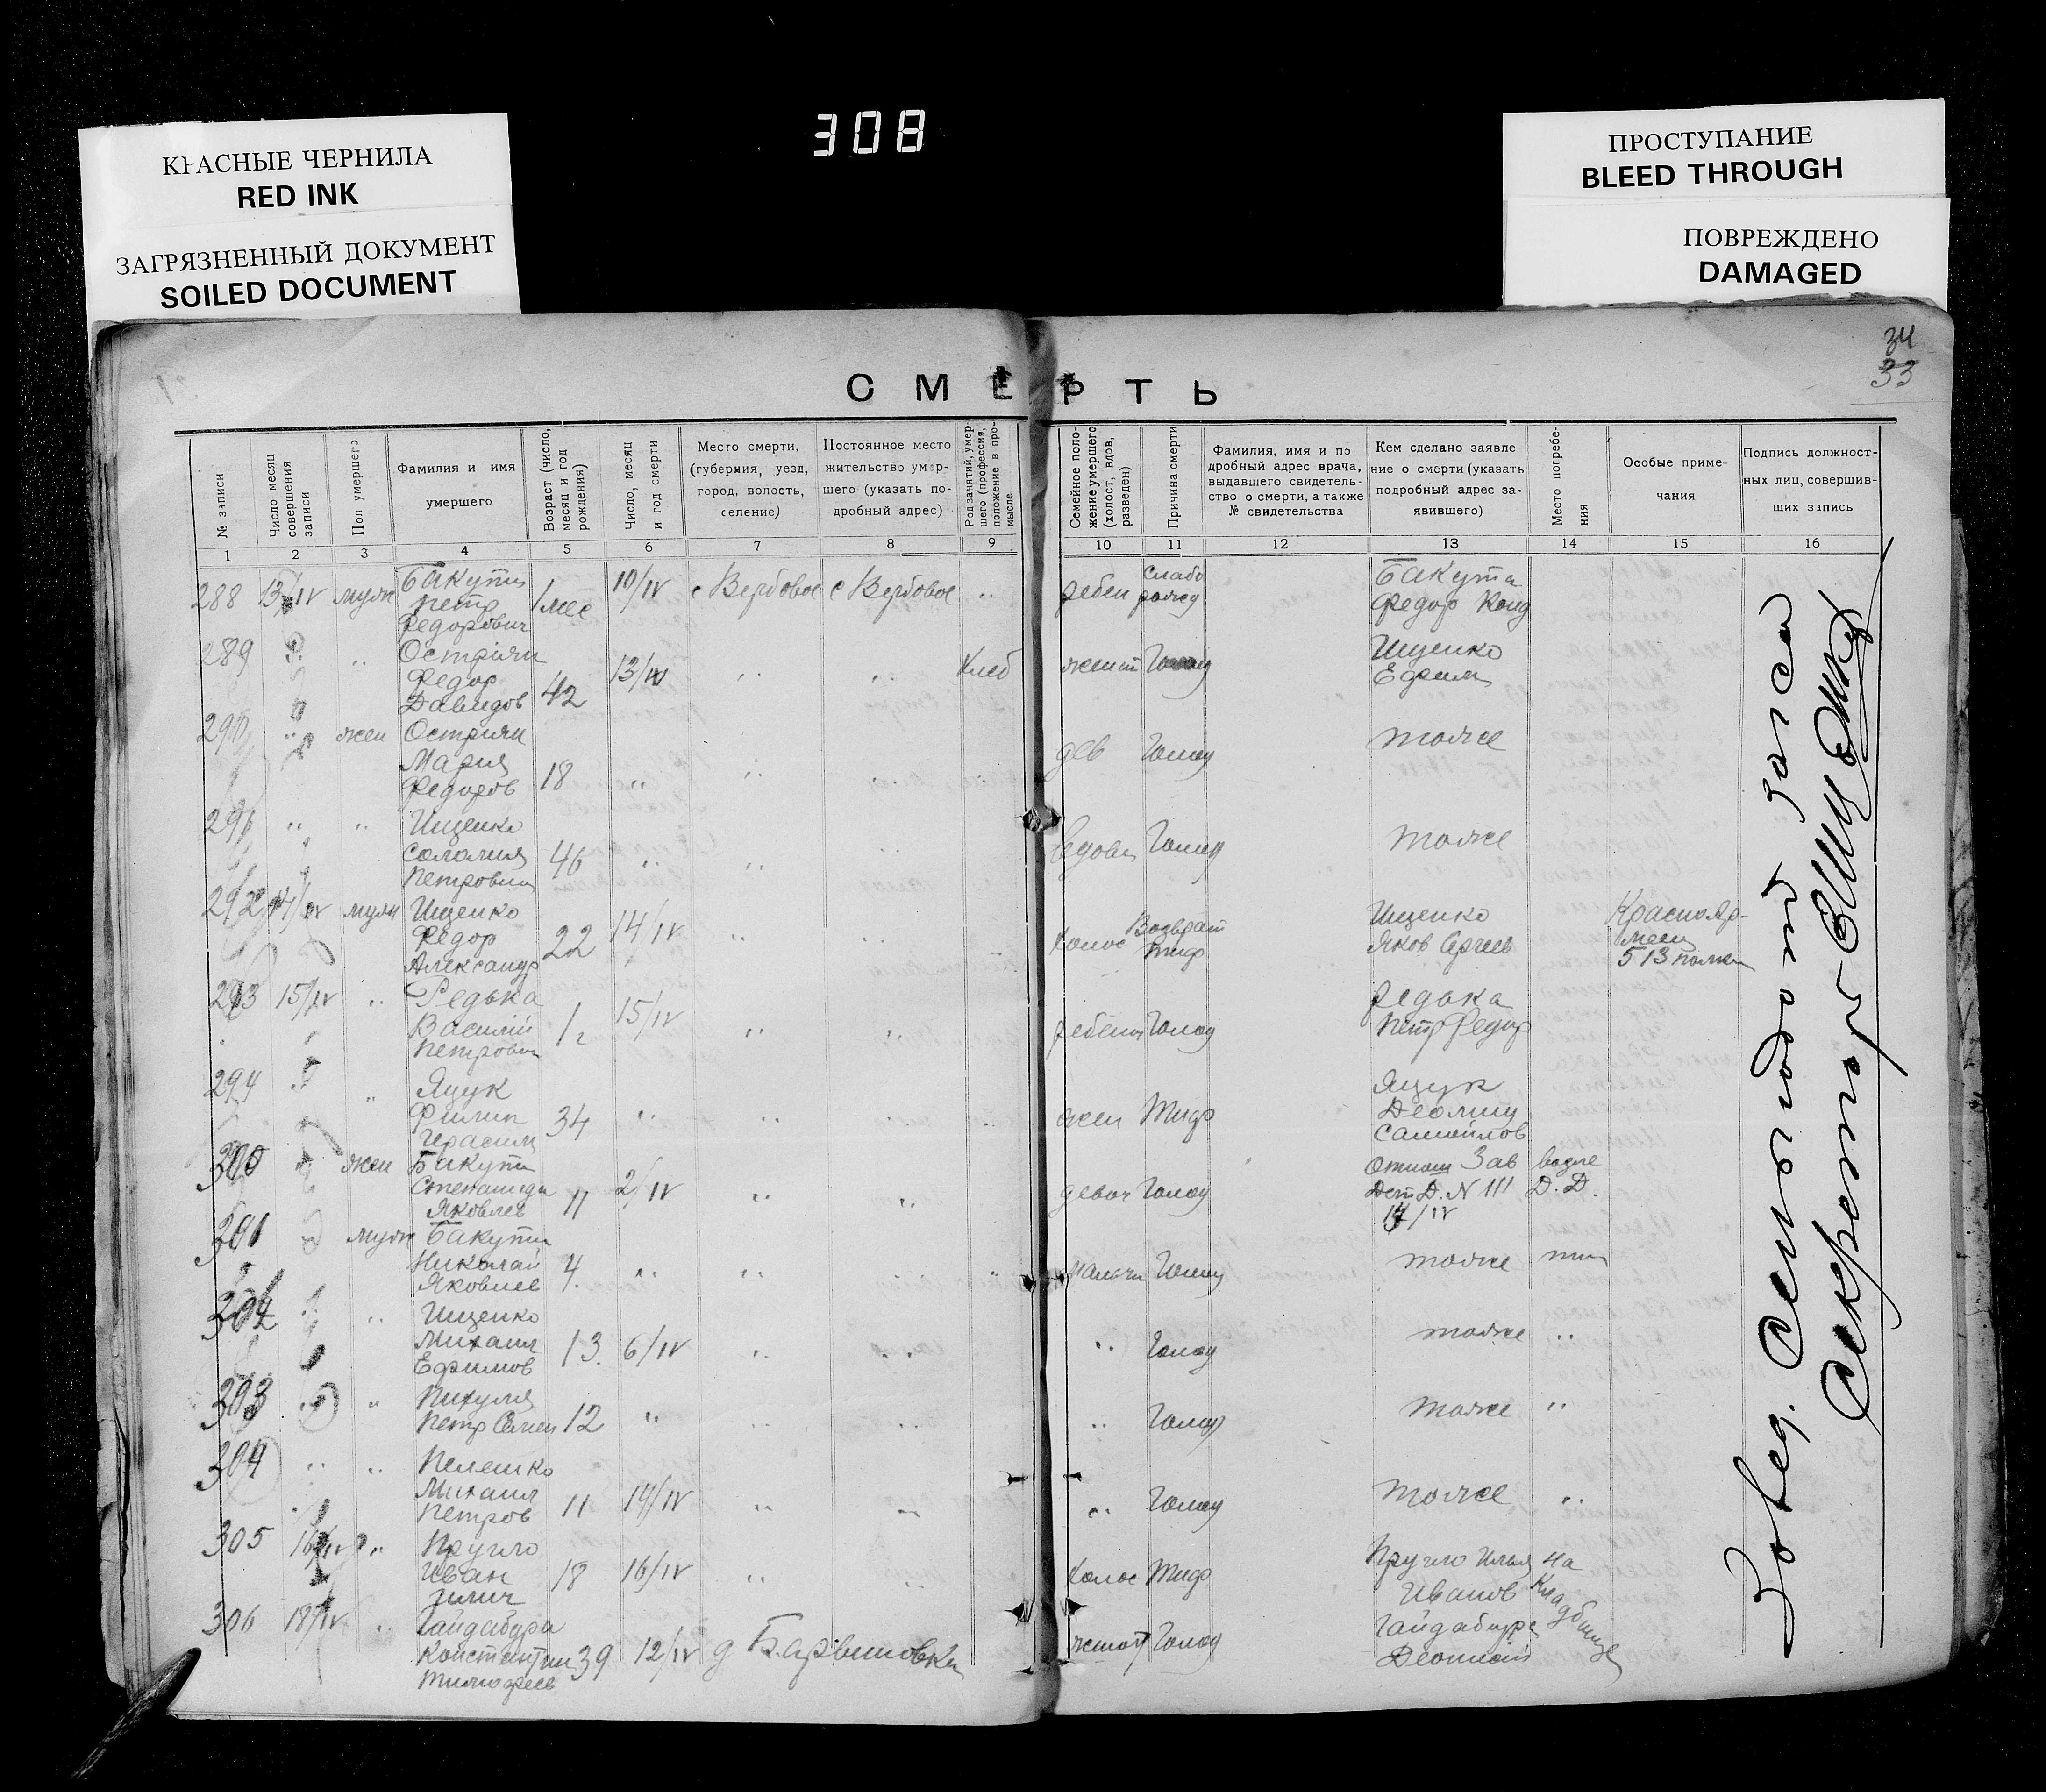 308
КРАСНЫЕ ЧЕРНИЛА
RED INK
ЗАГРЯЗНЕННЫЙ ДОКУМЕНТ
SOILED DOCUMENT
ПРОСТУПАНИЕ
BLEED THROUGH
ПОВРЕЖДЕНО
DAMAGED
34
33
СМЕРТЬ
№ записи
Число месяц совершения записи
Пол умершего
Фамилия и имя умершего
Возраст (число, месяц и год рождения)
Число, месяц и год смерти
Место смерти, (губерния, уезд, город, волость, селение)
Постоянное место жительство умершего (указать подробный адрес)
Род занятий, умершего (профессия, положение в промысле
Семейное положение умершего (холост, вдов, разведен)
Причина смерти
Фамилия, имя и подробный адрес врача, выдавшего свидетельство о смерти, а также № свидетельства
Кем сделано заявление о смерти (указать подробный адрес заявившего)
Место погребения
Особые примечания
Подпись должностных лиц, совершивших запись
1 2 3 4 5 6 7 8 9 10 11 12 13 14 15 16
288 13/IV муж Бакута 10/IV с Вербовое с Вербовое " ребен слабо Бакута
Петр 1 мес рожд Федор Конд
Федорович
289 " " Острян 13/IV " " Хлеб женат Голод Ищенко
Федор 42 Ефим
Давидов
290 " жен Острян дев Голод тоже
Мария 18 " " "
Федоров
291 " " Ищенко вдова Голод тоже
Соломия 46 " " "
Петровна
292 14/IV муж Ищенко 14/IV " " холос Возврат Ищенко Красноар-
Федор 22 тиф Яков Сергеев меец
Александр 513 полка
293 15/IV " Редька 15/IV " " ребенок Голод Редька
Василий 1 Петр Федор
Петрович
294 " " Яцук жен Тиф Яцук
Филип 34 " " " "
Герасим Самойлов
300 " жен Бакута 2/IV " " девоч Голод Отнош Зав возле
Степанида 11 Дет Д. N III Д. Д.
Яковлев 14/IV
301 " муж Бакута мальчи Голод тоже
Николай 4 " " " "
Яковлев
302 " " Ищенко " Голод тоже "
Михаил 13 6/IV " "
Ефимов
303 " " Пикуля " Голод тоже "
Петр Семен 12 " " "
304 " " Пелешко " Голод тоже "
Михаил 11 14/IV " "
Петров
305 16/IV " Кругло 16/IV " " холос Тиф Кругло Илья на
Иван 18 Иванов Кладбище
Илич
306 18/IV " Гайдабура женат Голод Гайдабура
Константин 39 12/IV д Барвиновка Деонисий
Тимофеев
Завед.
Секретар